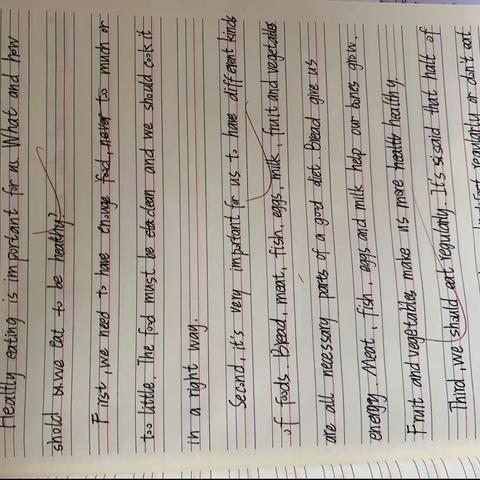 Healthy eating is important for us. What and how
should we eat to be healthy?
First, we need to have enouge food, never too much or
too little. The food must be clean and we should cook it
in a right way.
Second, it's very important for us to have different kinds
of foods. Bread, meat, fish, eggs, milk, fruit and vegetables
are all necessary parts of a good diet. Bread give us
energy. Meat, fish, eggs and milk help our bones grow.
Fruit and vegetables make us more healthy.
Third, we should eat regularly. It's said that half of
regularly or don't eat